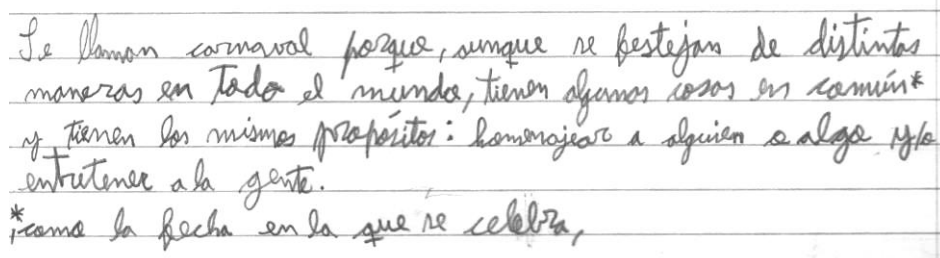 Se llaman carnaval porque, aunque se festejan de distintas
maneras en todo el mundo, tienen algunas cosas en común*
y tienen los mismos propósitos: homenajear a alguien o algo y/o
entretener a la gente.
*,como la fecha en la que se celebra,